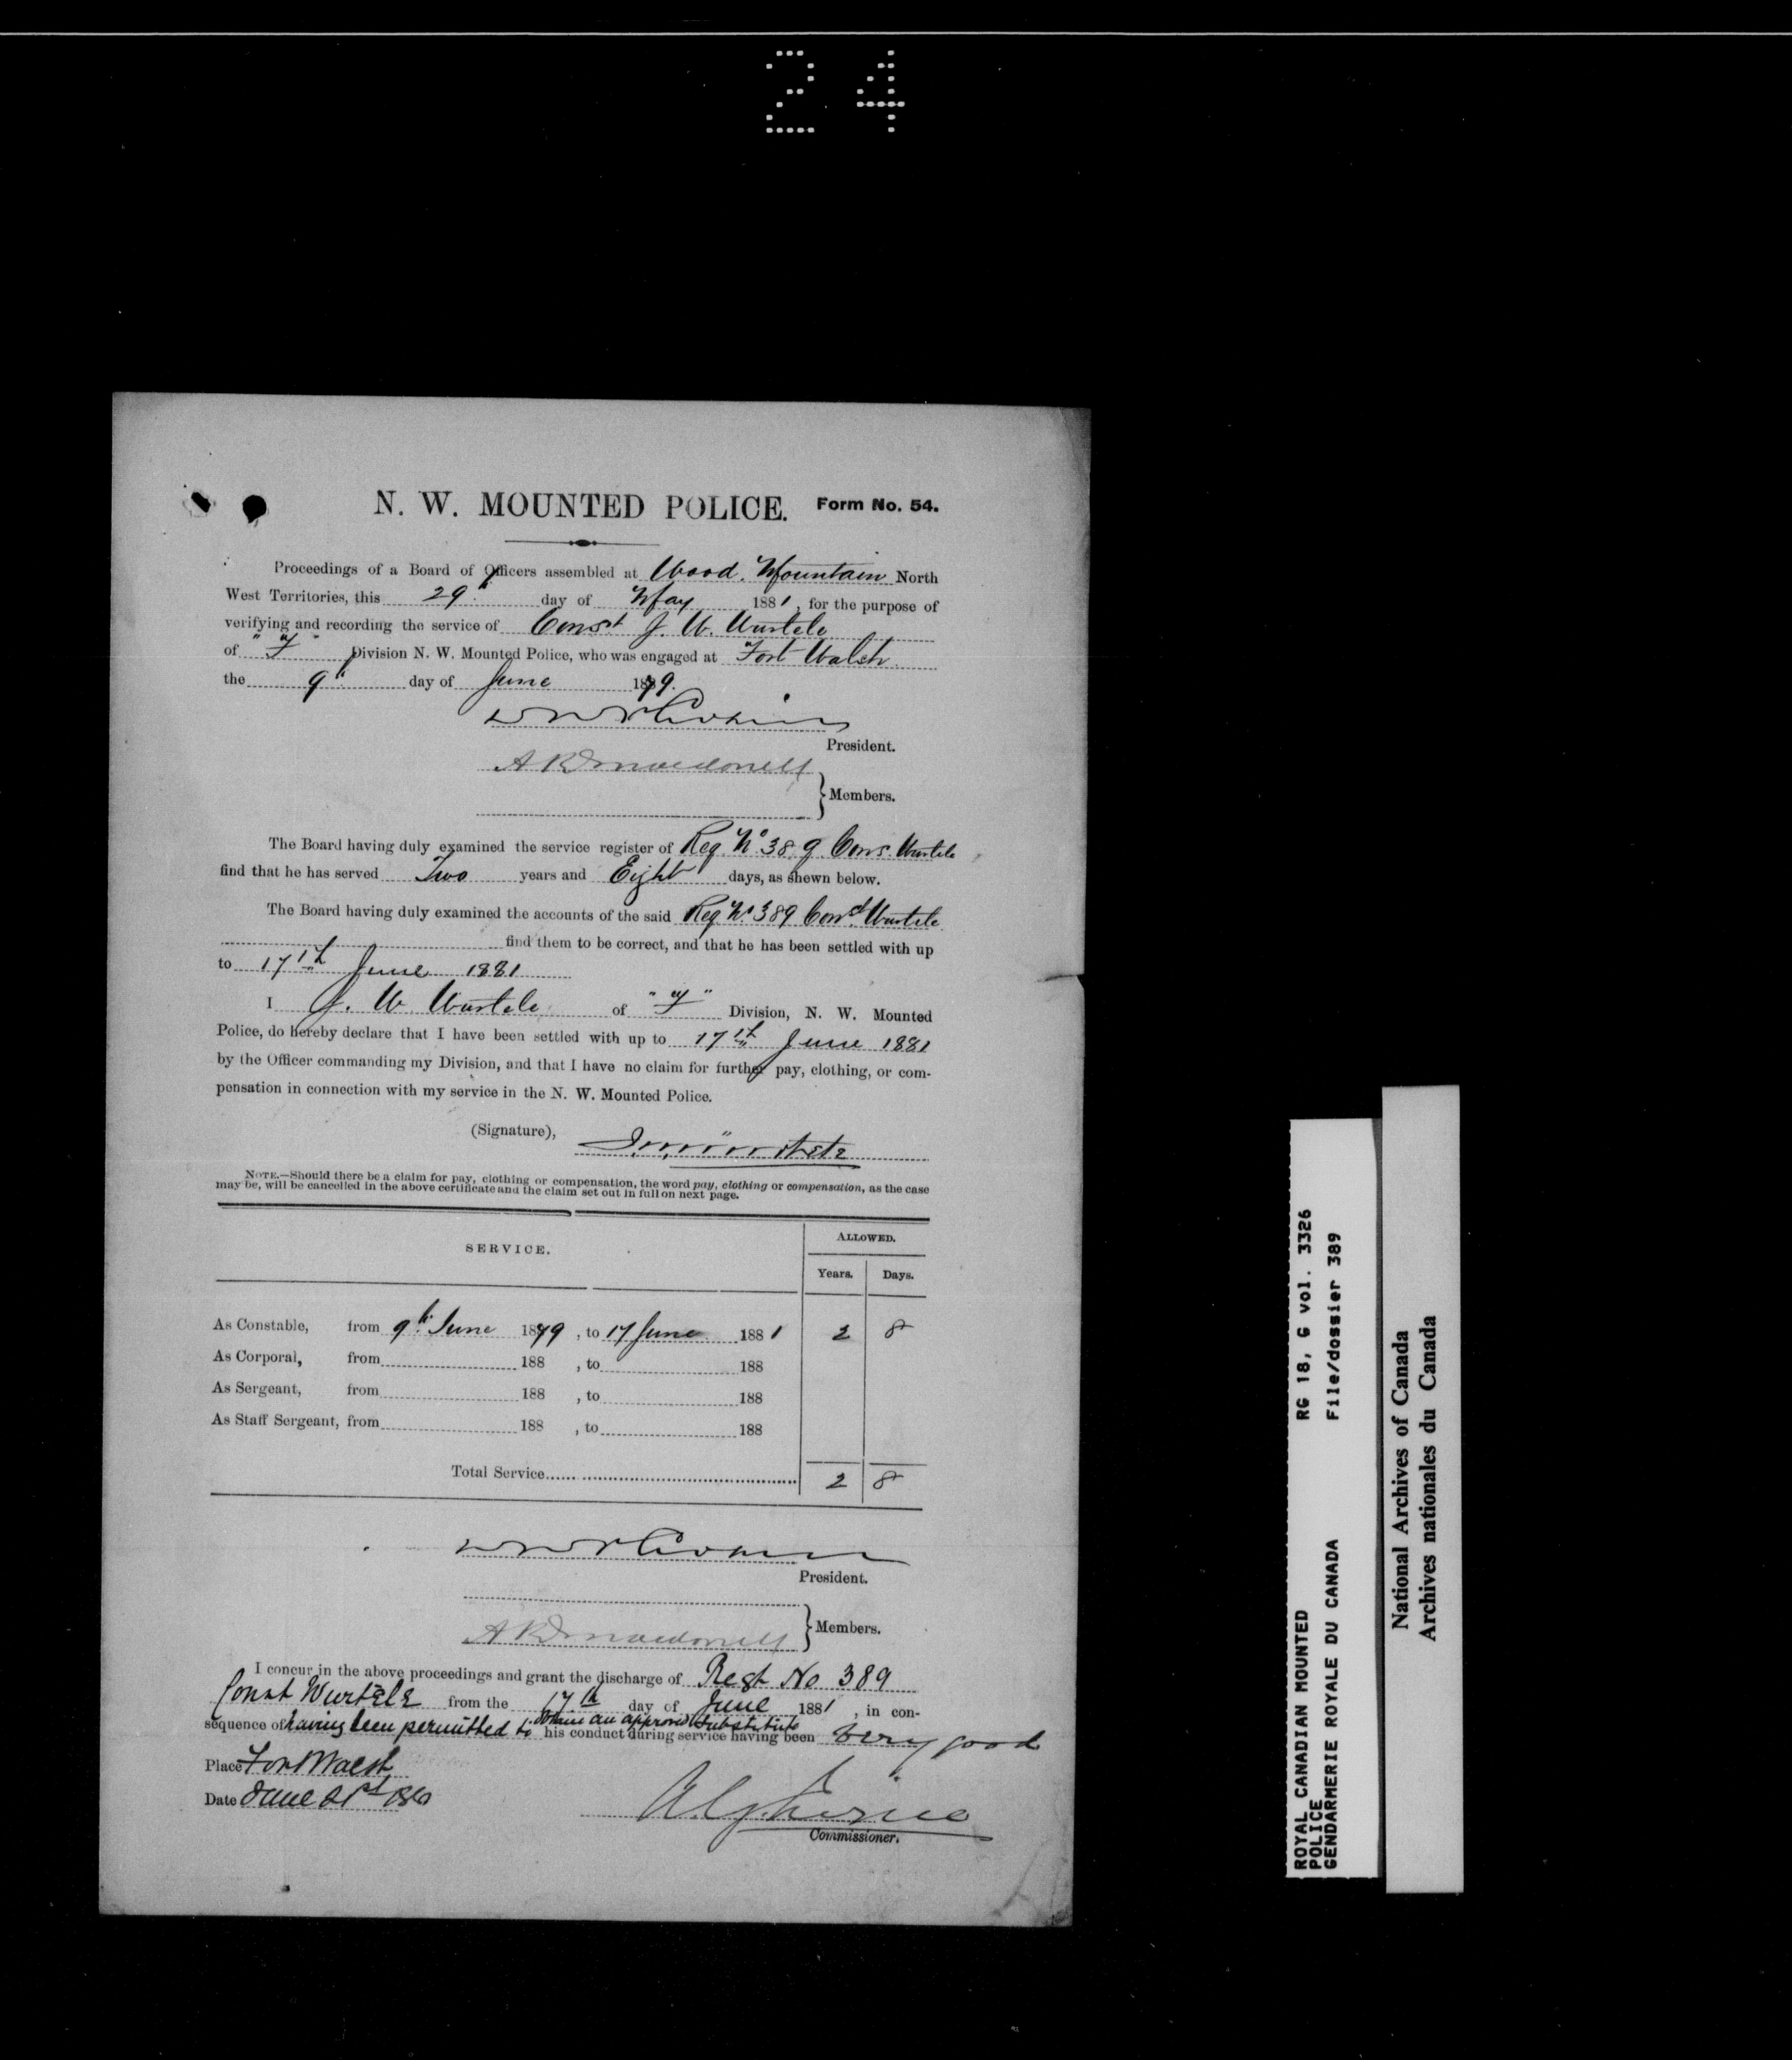 24
N. W. MOUNTED POLICE. Form No. 54.
Proceedings of a Board of Officers assembled at Wood Mountain North
West Territories, this 29th day of May 1881, for the purpose of
verifying and recording the service of Const J. W. Wurtele
of "F" Division N. W. Mounted Police, who was engaged at Fort Walsh
the 9th day of June 1879.
President.
A R Macdonell
Members.
The Board having duly examined the service register of Reg. No. 389 Cons. Wurtele
find that he has served Two years and Eight days, as shewn below.
The Board having duly examined the accounts of the said Reg. No. 389 Const Wurtele
find them to be correct, and that he has been settled with up
to 17th June 1881
I J. W Wurtele of "F" Division, N. W. Mounted
Police, do hereby declare that I have been settled with up to 17th June 1881
by the Officer commanding my Division, and that I have no claim for further pay, clothing, or com-
pensation in connection with my service in the N. W. Mounted Police.
(Signature), J. W. Würtele
NOTE.—Should there be a claim for pay, clothing or compensation, the word pay, clothing or compensation, as the case
may be, will be cancelled in the above certificate and the claim set out in full on next page.
SERVICE. ALLOWED.
Years. Days.
As Constable, from 9th June 1879, to 17 June 1881 2 8
As Corporal, from 188 , to 188
As Sergeant, from 188 , to 188
As Staff Sergeant, from 188 , to 188
Total Service 2 8
President.
A R Macdonell
Members.
I concur in the above proceedings and grant the discharge of Regt No 389
Const Wurtele from the 17th day of June 1881, in con-
sequence of having been permitted to obtain an approved substitute his conduct during service having been very good
Place Fort Walsh
Date June 21st 188
A. G. Irvine
Commissioner.
ROYAL CANADIAN MOUNTED RG 18, G vol. 3326
POLICE
GENDARMERIE ROYALE DU CANADA File/dossier 389
National Archives of Canada
Archives nationales du Canada